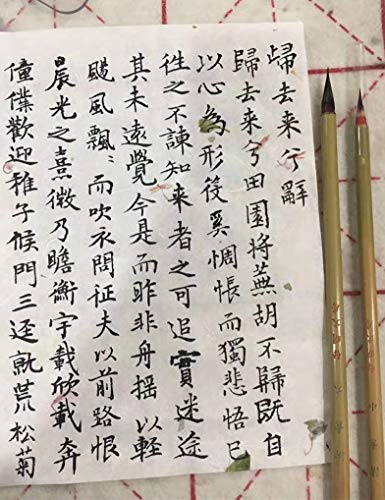 歸去来兮辭
歸去来兮田園將蕪胡不歸既自
以心為形役奚惆悵而獨悲悟已
徃之不諫知来者之可追實迷途
其未遠覺今是而昨非舟摇以輕
颺風飄〻而吹衣問征夫以前路恨
晨光之熹微乃瞻衡宇載欣載奔
僮僕歡迎稚子候門三逕就荒松菊